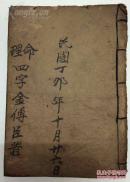 民國丁卯年十月廿六日
命
理四字金傅臣著